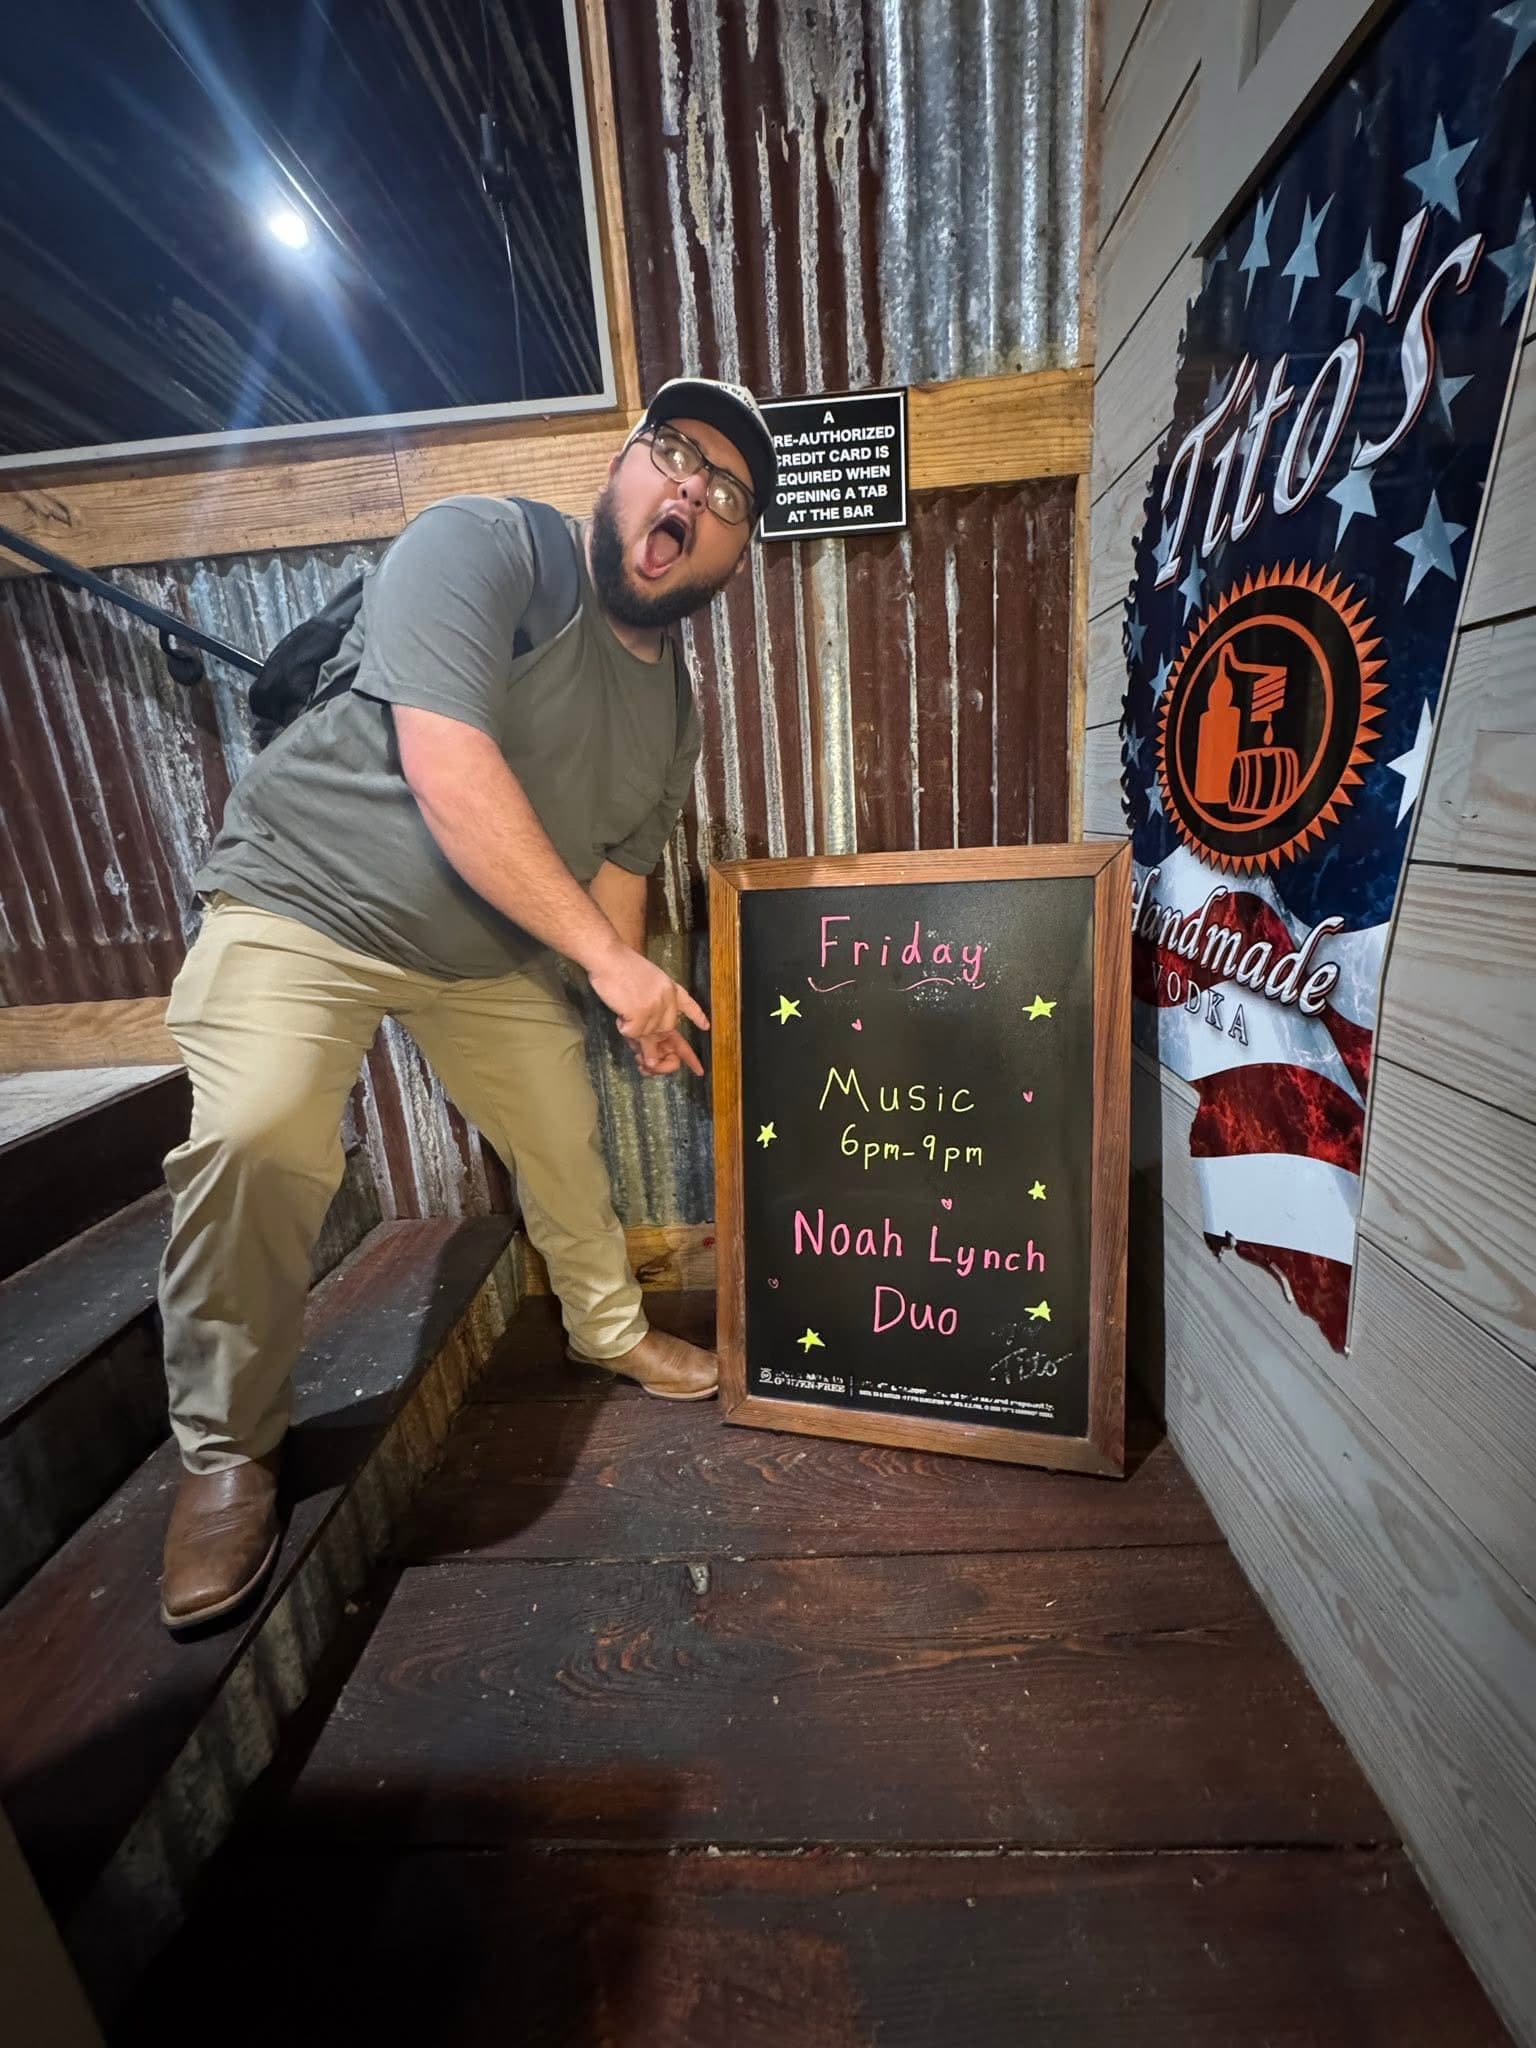 A
RE-AUTHORIZED
CREDIT CARD IS
EQUIRED WHEN
OPENING A TAB
AT THE BAR
Tito's
Handmade
VODKA
Friday
Music
6pm-9pm
Noah Lynch
Duo
Tito
GLUTEN-FREE